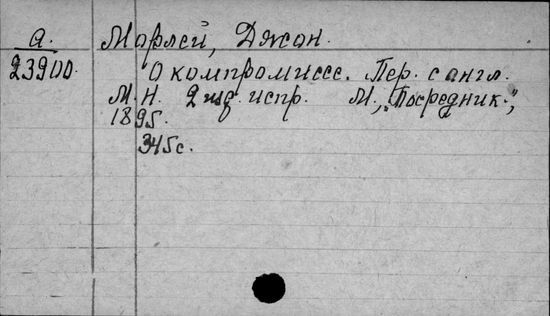 а. Морлей, Джон.
23900. О компромиссе. Пер. с англ.
М. Н. 2 изд. испр. М., "Посредник",
1895.
345 с.